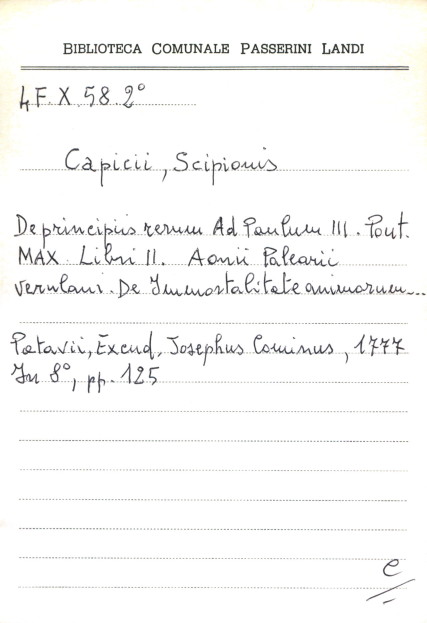 BIBLIOTECA COMUNALE PASSERINI LANDI
4 F. X. 58. 2°
Capicii, Scipionis
De principiis rerum Ad Paulum III. Pont.
MAX Libri II. Aonii Palearii
verulani. De Immortalitate animorum...
Patavii, Excud, Josephus Cominus, 1777
In 8°, pp. 125
e